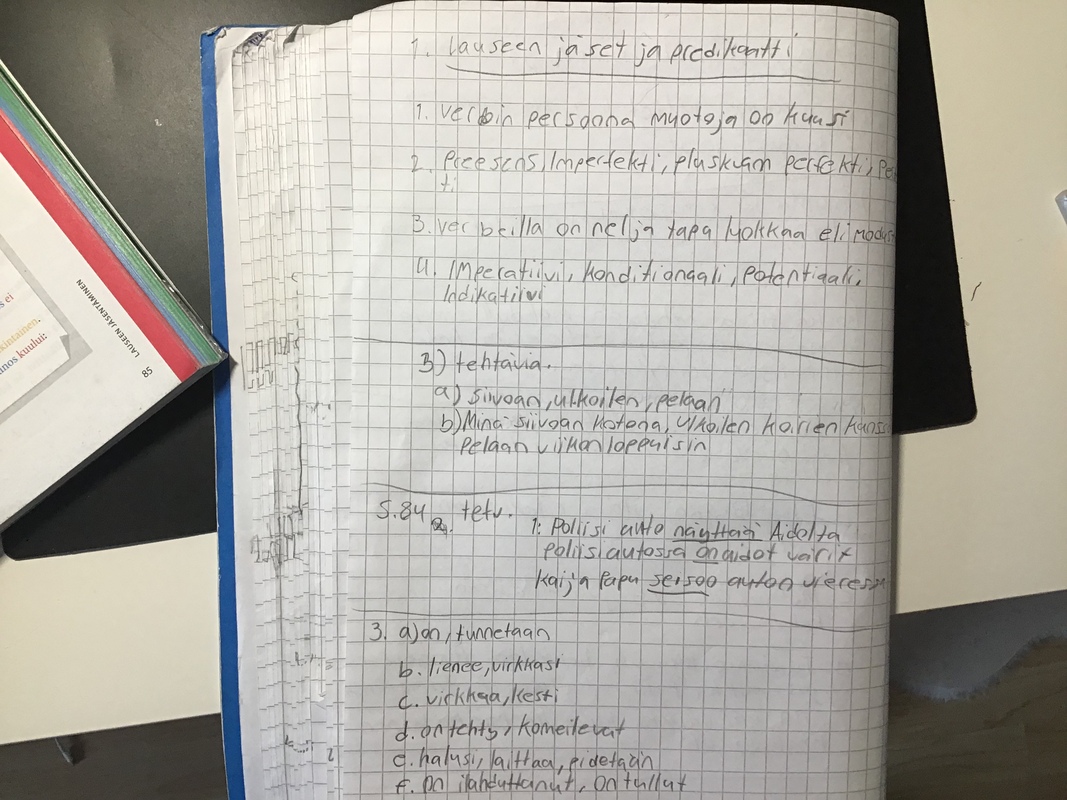 1. Lauseen jäset ja predikaatti
1. verbin persoona muotoja on kuusi
2. Preesens, Imperfekti, pluskvam perfekti, Pe
ti
3. verbeilla on nelja tapa luokkaa eli modus
4. Imperatiivi, konditionaali, potentiaali,
Indikatiivi
3) tehtäviä.
a) siivoan, ulkoilen, pelaan
b) Minä siivoan kotona, Ulkoilen koirien kanss
Pelaan viikonloppuisin
S.84 2. tetv.
1: Poliisi auto näyttää Aidolta
poliisi autossa on aidot värit
Kaija Papu seisoo auton vieressä
3. a) on, tunnetaan
b. lienee, virkkasi
c. virkkaa, kesti
d. on tehty, komeilevat
e. halusi, laittaa, pidetään
f. on ilahduttanut, on tullut
LAUSEEN JÄSENTÄMINEN
85
s ei
kintainen.
nos kuului: